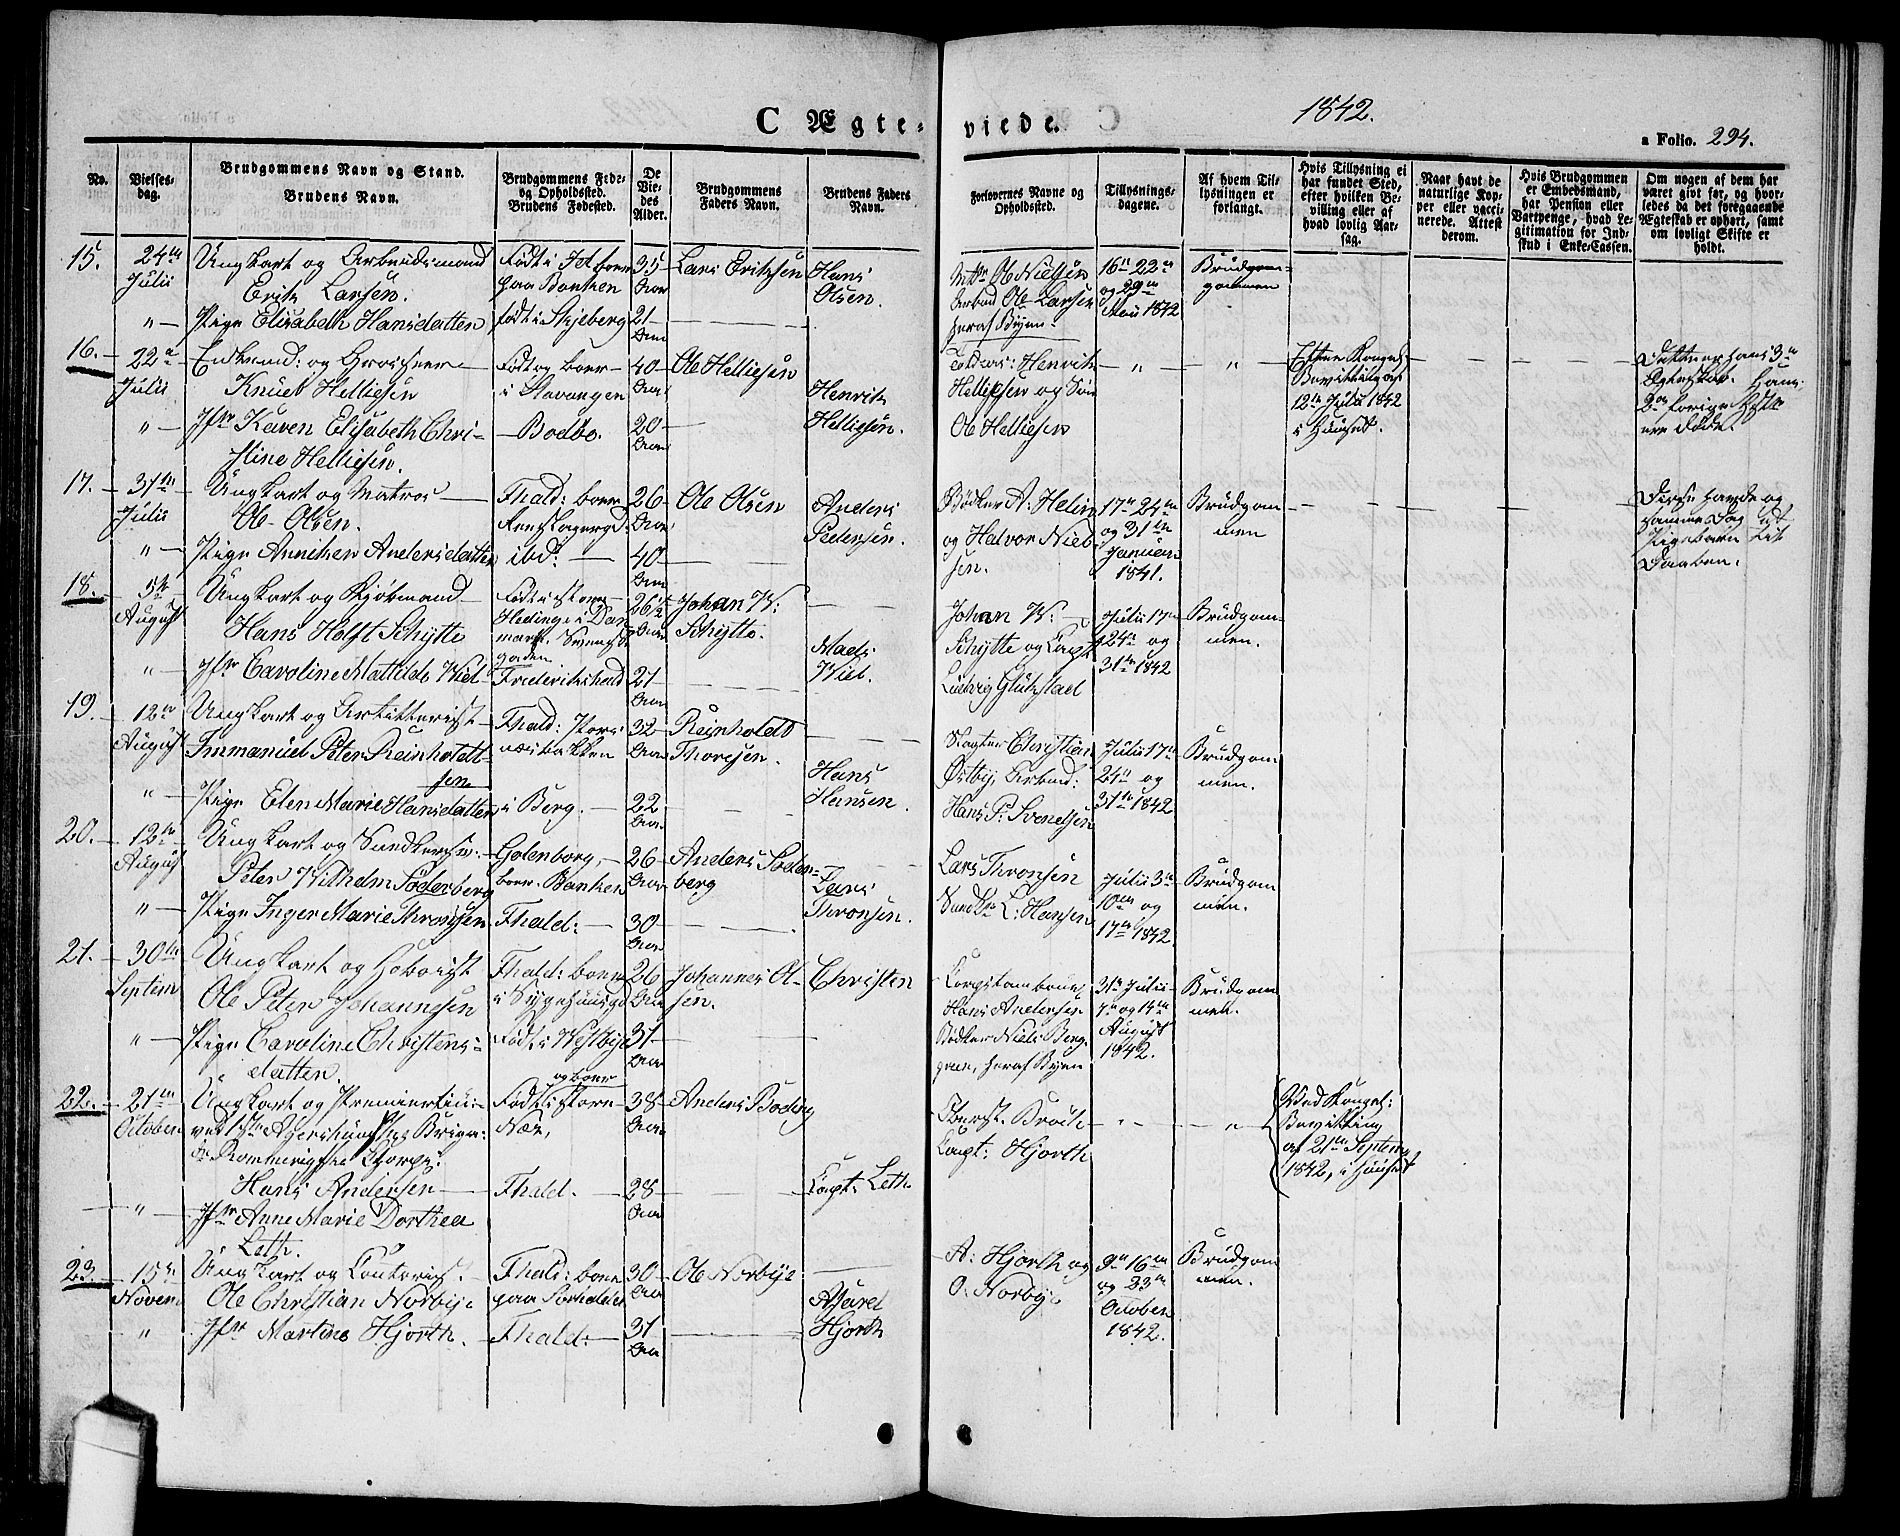 C Ægteviede.
1842.
a Folio. 294.
No.
Vielsesdag.
Brudgommens Navn og Stand.
Brudens Navn.
Brudgommens Føde- og Opholdssted.
Brudens Fødested.
De Viedes Alder.
Brudgommens Faders Navn.
Brudens Faders Navn.
Forlovernes Navne og Opholdssted.
Tillysningsdagene.
Af hvem Tillysningen er forlangt.
Hvis Tillysning ei har fundet Sted, efter hvilken Bevilling eller af hvad lovlig Aarsag.
Naar havt de naturlige Kopper eller vaccinerede. Attest derom.
Hvis Brudgommen er Embedsmand, har Pension eller Vartpenge, hvad Legitimation for Indskud i Enke-Cassen.
Om nogen af dem har været gift før, og hvorledes da det foregaaende Ægteskab er ophørt, samt om lovligt Skifte er holdt.
15. 24de Julii
Ungkarl og Arbeidsmand
Erik Larsen.
Født i
paa Banken
35 Aar
Lars Erichsen
Hans Olsen.
Ole Nielsen
Ole Larsen
heraf Byen
16de 22de
og 29de
Mai 1842
Brudgommen
" Pige Elisabeth Hansdatter
født i Skjeberg
21 Aar
16. 22de Julii
Enkemd: og Grosserer
Knud Helliesen
Født og boer
i Stavanger
40 Aar
Ole Helliesen
Henrik Helliesen.
Henrik
Helliesen og Søn
Ole Helliesen
"
"
Efter Kongel:
Bevilling af
12te Julii 1842
i Huuset.
Dette er hans 3die
Ægteskab. Hans
2de forige
ere døde.
" Jfr Karen Elisabeth Christine Helliesen.
Bodøe.
20 Aar
17. 31te Julii
Ungkarl og Matros
Ole Olsen.
Fhald: boer
26 Aar
Ole Olsen
Anders Pedersen.
Bødker A: Helin
og Halvor Nielsen.
17de 24de
og 31te
Januar
1841.
Brudgommen
Disse havde
samme Dag et
Pigebarn til
Daaben.
" Pige Anniken Andersdatter
ibd:
40 Aar
18. 5te August
Ungkarl og Kjøbmand
Hans Holst Schytte
Født i Store
Hedinge i Danmark.
26½ Aar
Johan W: Schytte.
Mads Wiel.
Johan W:
Schytte og Capt
Ludvig Glükstad
Julii 17de
24de og
31te 1842
Brudgommen.
" Jfr Caroline Mathilde Wiel
Frederikshald
21 Aar
19. 12te August
Ungkarl og Artillerist
Immanuel Peter Reinholdtsen
Fhald:
32 Aar
Reinholdt Thoresen.
Hans Hansen.
Slagter Christian
Østby, Arbmd:
Hans P: Svendsen
Julii 17de
24de og
31te 1842
Brudgommen.
" Pige Elen Marie Hansdatter
i Berg.
22 Aar
20. 12te August
Ungkarl og
Peter Wilhelm Søderberg
Gotenborg,
boer Banken
26 Aar
Anders Søderberg
Lars Thronsen.
Lars Thronsen
L: Hansen
Julii 3de
10de og
17de 1842
Brudgommen.
" Pige Inger Marie Thronsen
Fhald:
30 Aar
21. 30te Septem
Ungkarl og Hoboist
Ole Peter Johannesen
Fhald: boer
i Sygehuusgd
26 Aar
Johannes Olsen.
Christen
Corpstambour
Hans Andersen
Bødker Niels Berggren, heraf Byen
31te Julii
7de og 14de
August
1842.
Brudgommen.
" Pige Caroline Christensdatter
Født i Westbye
31 Aar
22. 21de October
Ungkarl og Premierlieu:
ved 1ste Agershuusiske Brigade Rommerigske Corps:
Hans Andersen
Født
og boer
Næs,
38 Aar
Anders Boding
Capt: Leth
Oberst. Krohn
Capt: Hjorth
"
"
Ved Kongel:
Bevilling
af 21de Septem
1842, i Huuset
" Jfr Anne Marie Dorthea
Leth.
Fhald.
28 Aar
23. 15de Novem
Ungkarl og Contorist.
Ole Christian Norbye
Fhald: boer
paa Sørhalden
30 Aar
Ole Norbye
Hjorth
A: Hjorth og
O: Norbye
9de 16de
og 23de
October
1842.
Brudgommen.
" Jfr Martine Hjorth.
Fhald:
31 Aar